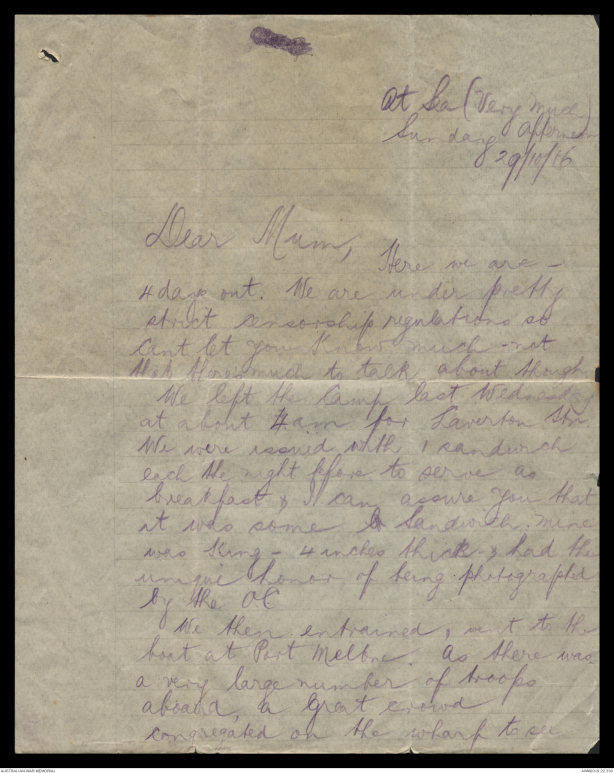 At Sea (Very much)
Sunday Afternoon
29/10/16
Dear Mum,
Here we are –
4 days out. We are under pretty
strict censorship regulations so
cant let you know much - not
that there's much to talk about though.
We left the Camp last Wednesday
at about 4 am for Laverton Stn.
We were issued with 1 sandwich
each the night before to serve as
breakfast & I can assure you that
it was some Sandwich. Mine
was King – 4 inches thick & had the
unique honor of being photographed
by the OC
We then entrained, went to the
boat at Port Melbne. As there was
a very large number of troops
aboard, a great crowd
congregated on the wharf to see
AUSTRALIAN WAR MEMORIAL